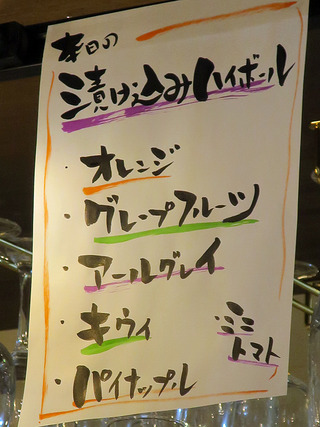 本日の
漬け込みハイボール
・オレンジ
・グレープフルーツ
・アールグレイ
・キウイ
・パイナップル
・ミニ
トマト